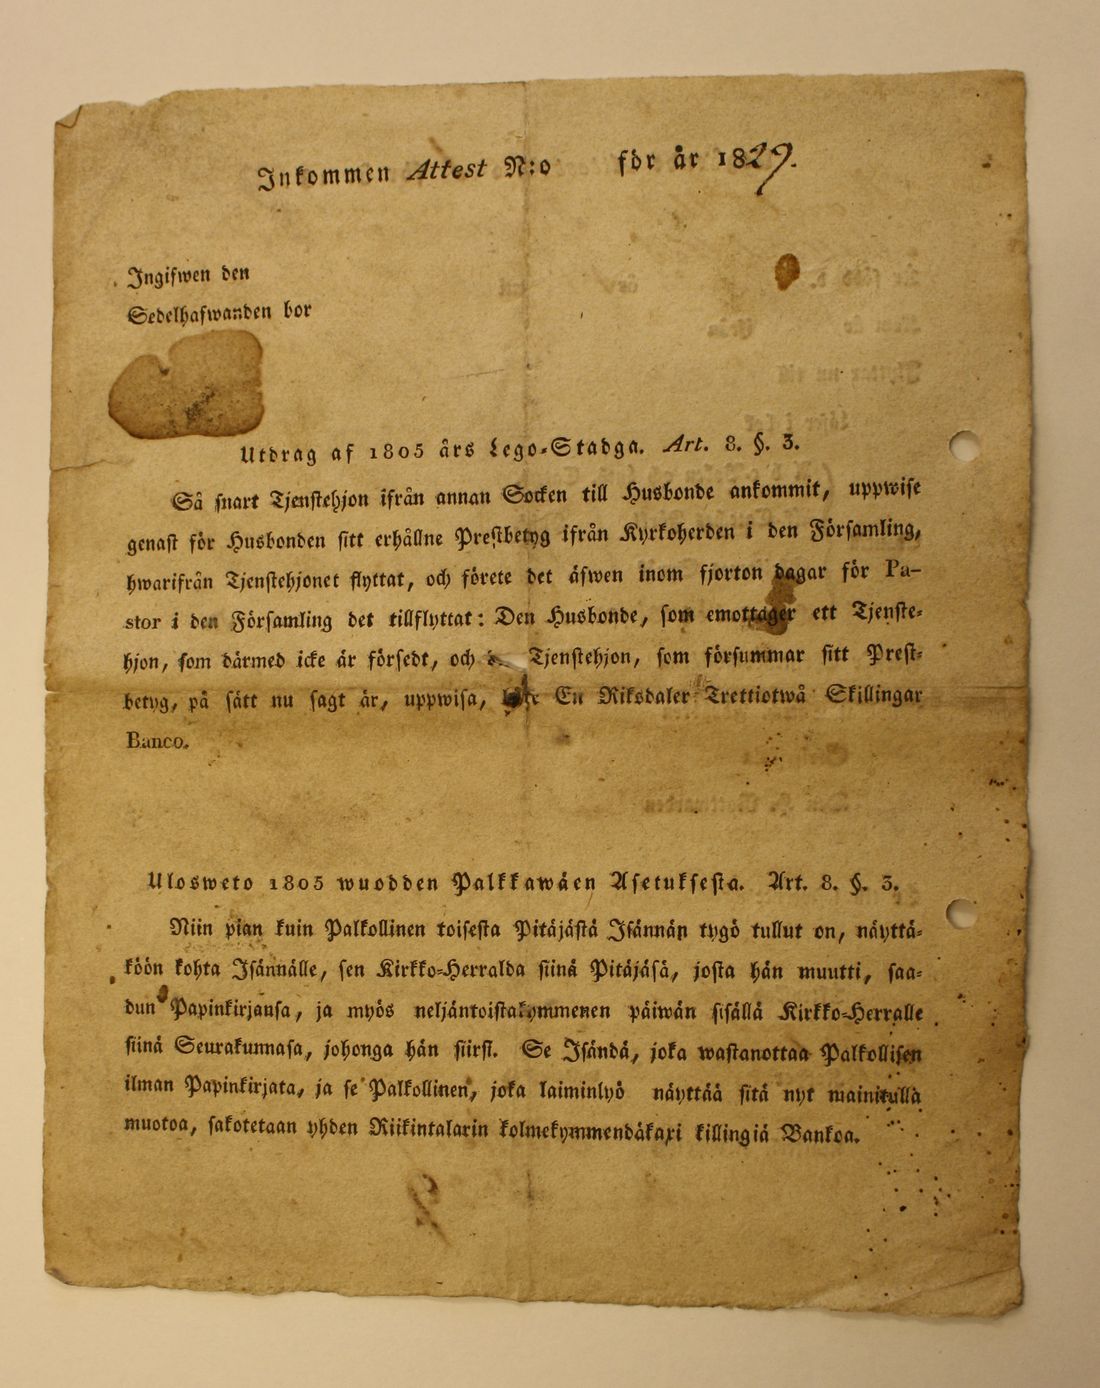 Inkommen Attest N:o för år 1829.
Ingifwen den
Sedelhafwanden bor
Utdrag af 1805 års Lego-Stadga. Art. 8. §. 3.
Så snart Tjenstehjon ifrån annan Socken till Husbonde ankommit, uppwise
genast för Husbonden sitt erhållne Prestbetyg ifrån Kyrkoherden i den Församling,
hwarifrån Tjenstehjonet flyttat, och förete det äfwen inom fjorton dagar för Pa-
stor i den Församling det tillflyttat: Den Husbonde, som emottager ett Tjenste-
hjon, som därmed icke är försedt, och Tjenstehjon, som försummar sitt Prest-
betyg, på sätt nu sagt är, uppwisa, En Riksdaler Trettiotwå Skillingar
Banco.
Ulosweto 1805 wuodden Palkkawäen Asetuksesta. Art. 8. §. 3.
Niin pian kuin Palkollinen toisesta Pitäjästä Isännän tygö tullut on, näyttä-
köön kohta Isännälle, sen Kirkko-Herralda siinä Pitäjäsä, josta hän muutti, saa-
dun Papinkirjansa, ja myös neljäntoistakymmenen päiwän sisällä Kirkko-Herralle
siinä Seurakunnasa, johonga hän siirst. Se Isändä, joka wastanottaa Palkollisen
ilman Papinkirjata, ja se Palkollinen, joka laiminlyö näyttää sitä nyt mainitulla
muotoa, sakotetaan yhden Riikintalarin kolmekymmendäkaxi killingiä Bankoa.